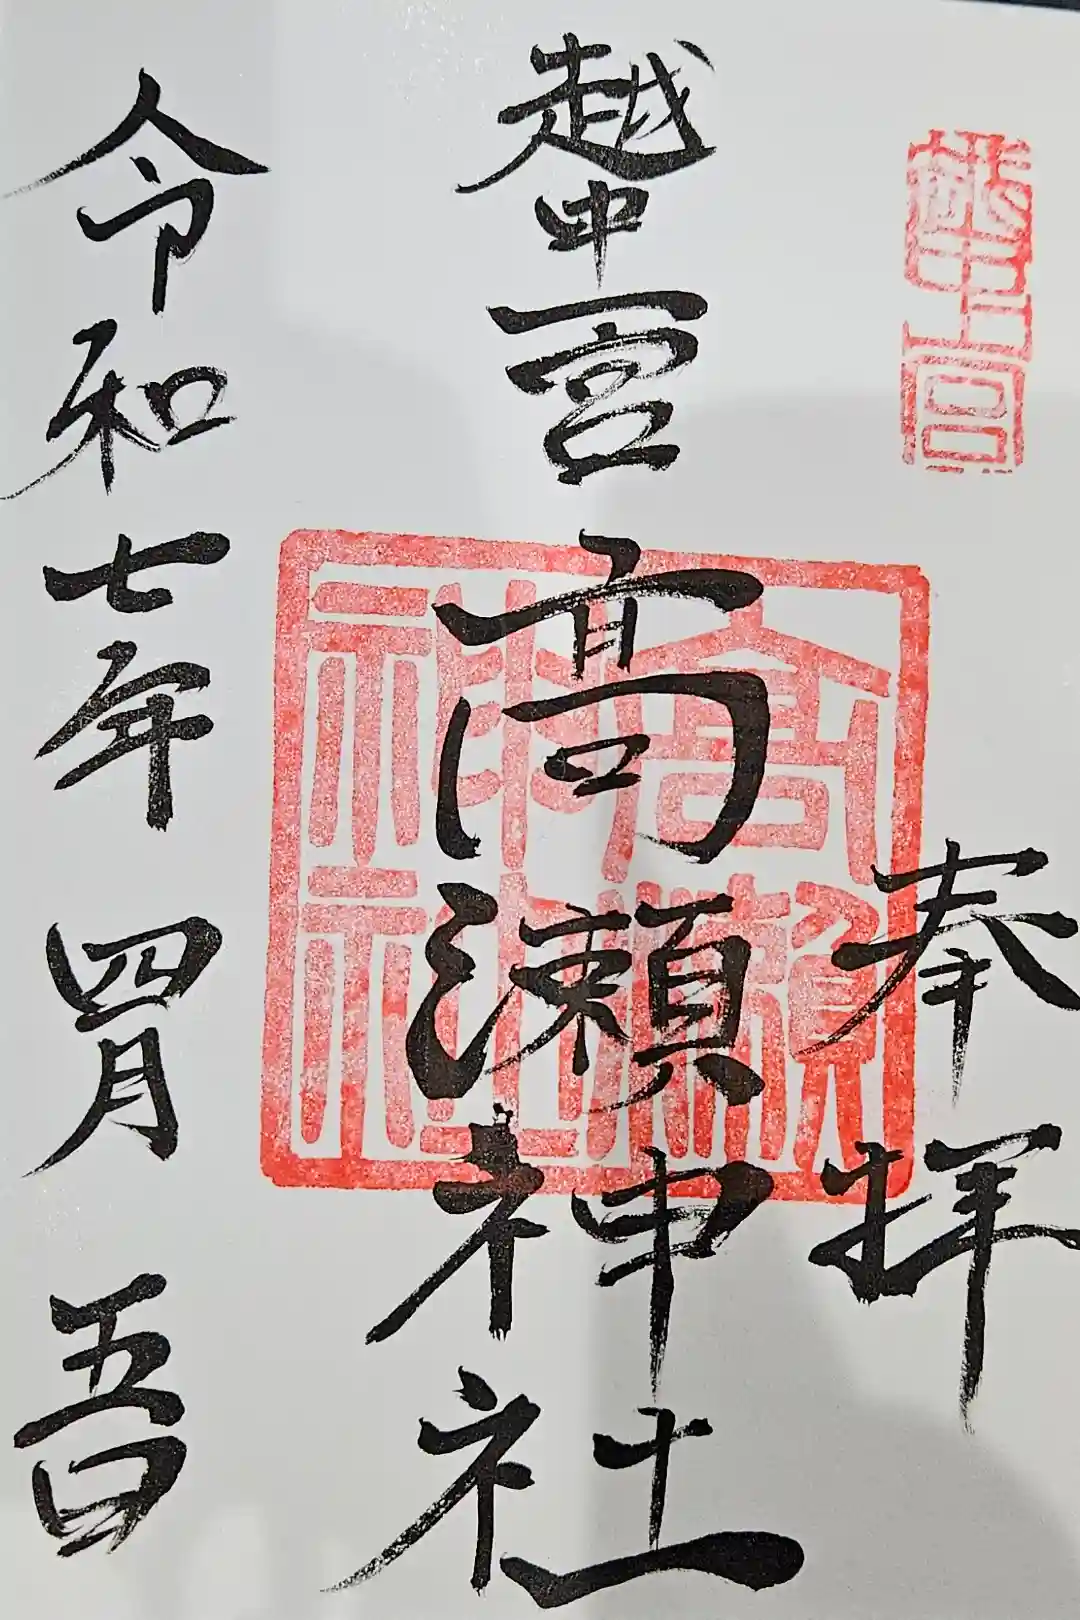 奉拝
越中一宮
高瀬神社
越中一宮
高瀬神社
令和七年四月五日